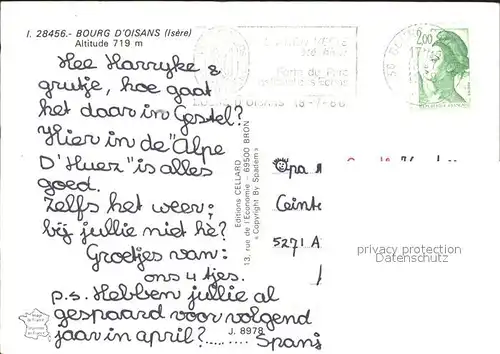 I. 28456.- BOURG D'OISANS (Isère)
Altitude 719 m
Hee Harryke &
grutje, hoe gaat
het daar in Gestel?
Hier in de "Alpe
D'Huez" is alles
goed.
Zelfs het weer;
bij jullie niet hè?
Groetjes van:
ons 4 tjes.
p.s. Hebben jullie al
gespaard voor volgend
jaar in april?......... Spanj
J. 8978
Editions CELLARD
13, rue de l'Economie - 69500 BRON
« Copyright By Spadem »
2,00
Opa
Ceint
5271 A
privacy protection
Datenschutz